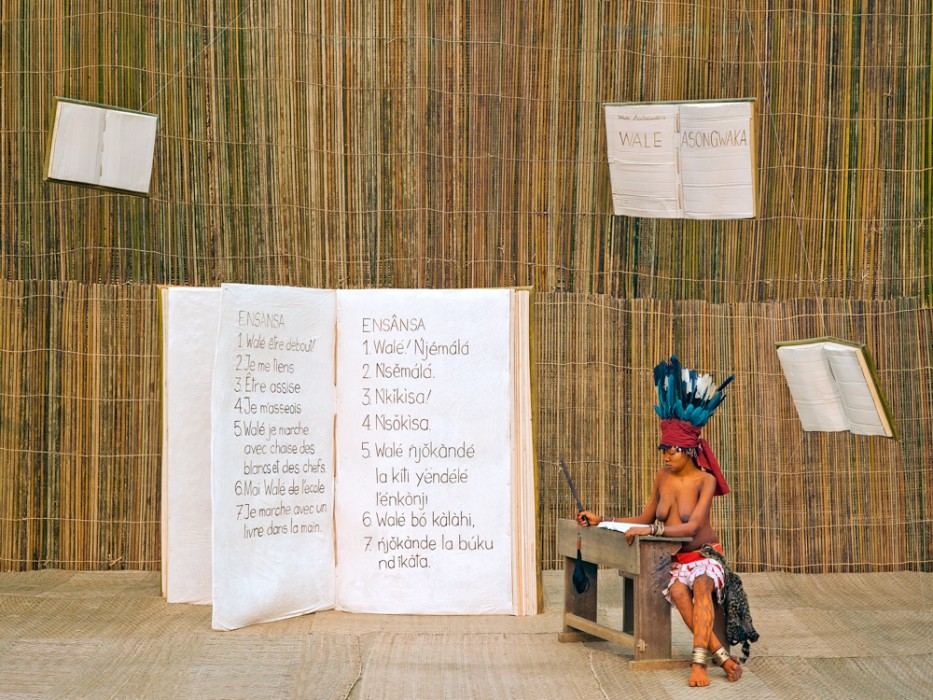 WALE ASONGWAKA
ENSÂNSA
1. Walé être debout!
2. Je me tiens
3. Être assise
4. Je m'asseois
5. Walé je marche
avec chaise des
blancs et des chefs.
6. Moi Walé de l'école
7. Je marche avec un
livre dans la main.
ENSÂNSA
1. Walé! Njémálá
2. Nsěmálá.
3. Nkǐkìsa!
4. Nsǒkìsa.
5. Walé ǹjǒkàndé
la kíti yěndélé
l'énkònji
6. Walé bó kàlàhi,
7. ńjǒkànde la búku
nd'ikáta.